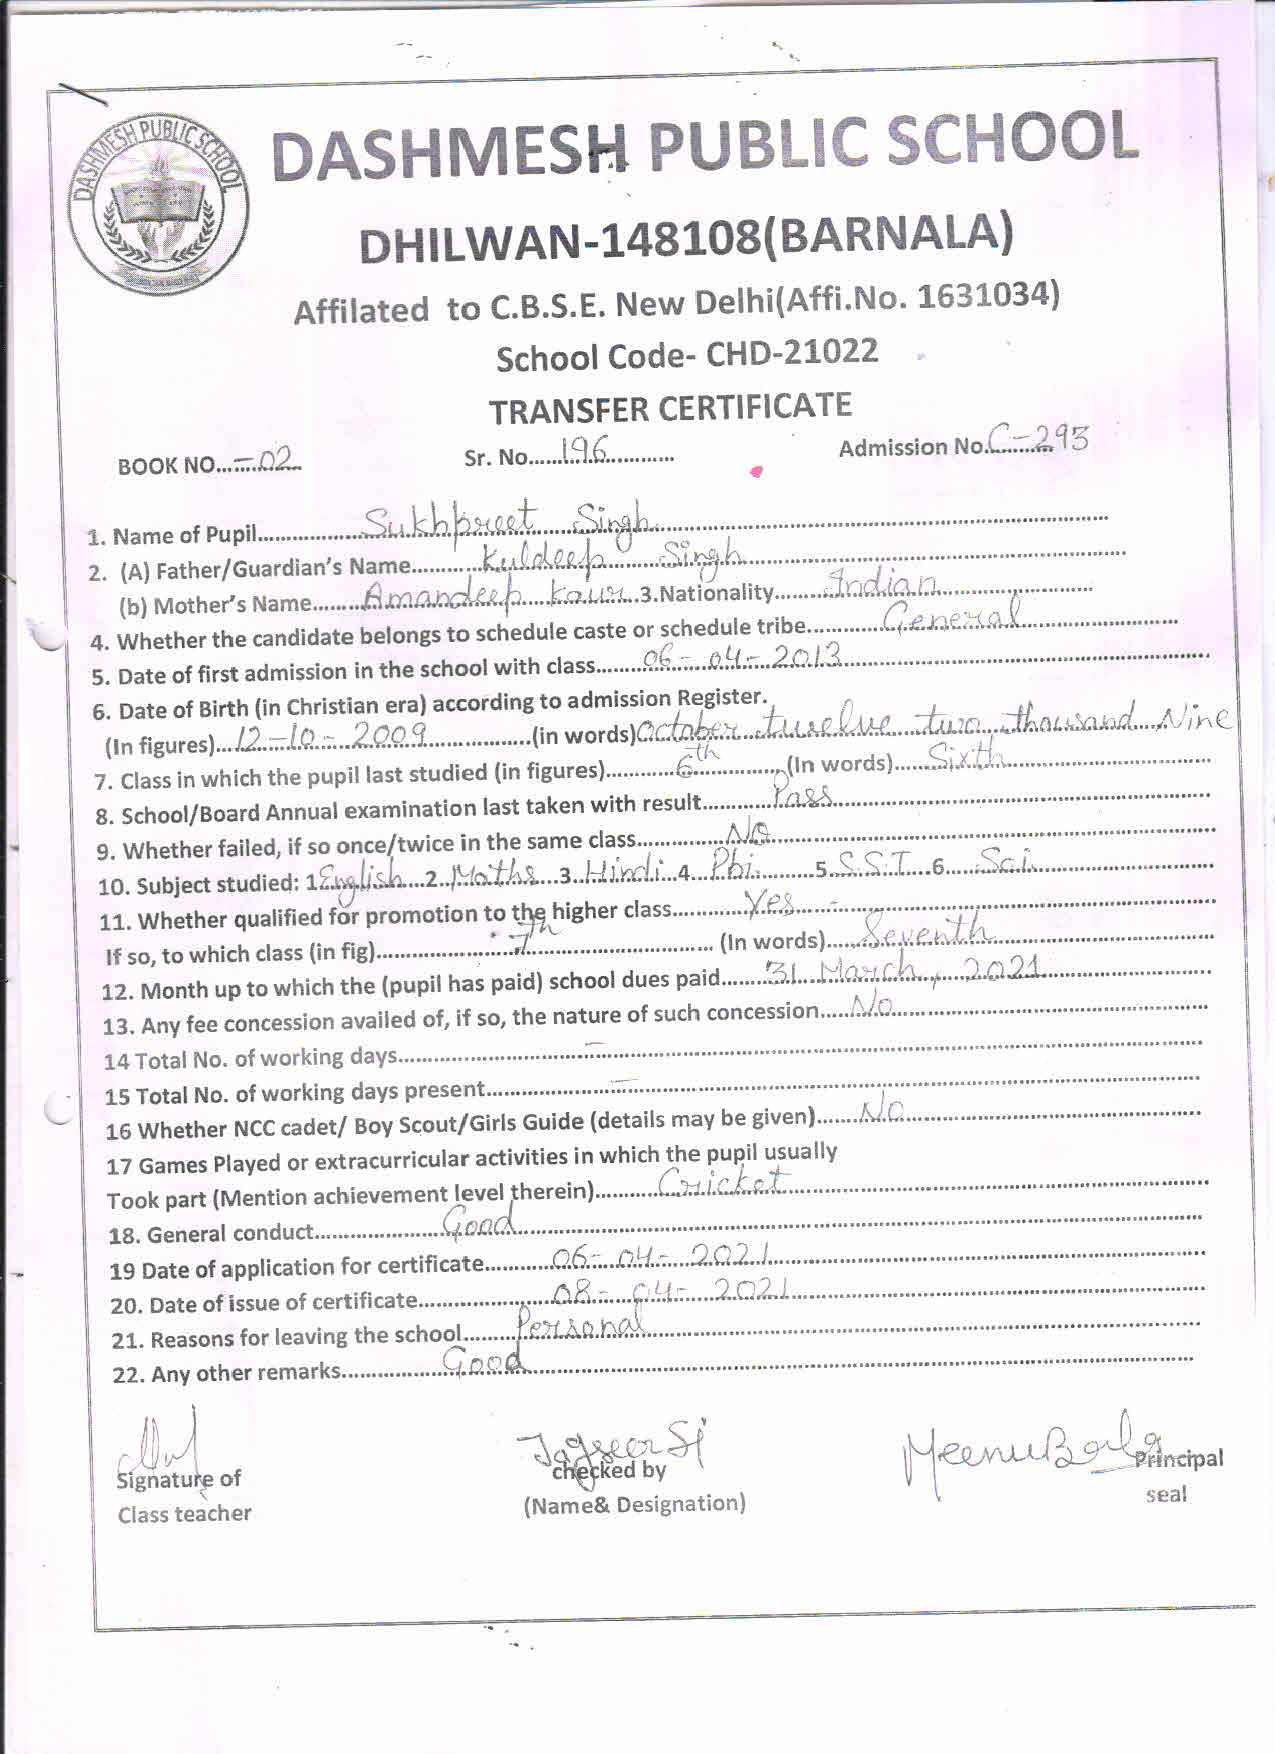 DASHMESH PUBLIC SCHOOL
DASHMESH PUBLIC SCHOOL
DHILWAN-148108(BARNALA)
Affilated to C.B.S.E. New Delhi(Affi.No. 1631034)
School Code- CHD-21022
TRANSFER CERTIFICATE
BOOK NO...-02 Sr. No......196............ Admission No.C-293
1. Name of Pupil..........Sukhpreet Singh
2. (A) Father/Guardian's Name..........Kuldeep Singh
(b) Mother's Name........Amandeep Kaur...3.Nationality........Indian
4. Whether the candidate belongs to schedule caste or schedule tribe............General
5. Date of first admission in the school with class........06-04-2013
6. Date of Birth (in Christian era) according to admission Register.
(In figures)...12-10-2009...............(in words)October twelve two thousand Nine
7. Class in which the pupil last studied (in figures)...........6th..............(In words)......Sixth
8. School/Board Annual examination last taken with result...........Pass
9. Whether failed, if so once/twice in the same class..............No
10. Subject studied: 1English...2..Maths...3..Hindi..4...Pbi..........5..S.S.T....6.....Sci.
11. Whether qualified for promotion to the higher class............Yes
If so, to which class (in fig)......................7th............................. (In words)......Seventh
12. Month up to which the (pupil has paid) school dues paid.......31 March, 2021
13. Any fee concession availed of, if so, the nature of such concession.....No
14 Total No. of working days........–
15 Total No. of working days present........–
16 Whether NCC cadet/ Boy Scout/Girls Guide (details may be given).......No
17 Games Played or extracurricular activities in which the pupil usually
Took part (Mention achievement level therein)..........Cricket
18. General conduct....................Good
19 Date of application for certificate...........06-04-2021
20. Date of issue of certificate....................08-04-2021
21. Reasons for leaving the school........Personal
22. Any other remarks..................Good
Jagseer Sj Meenu
Signature of checked by Principal
Class teacher (Name& Designation) seal